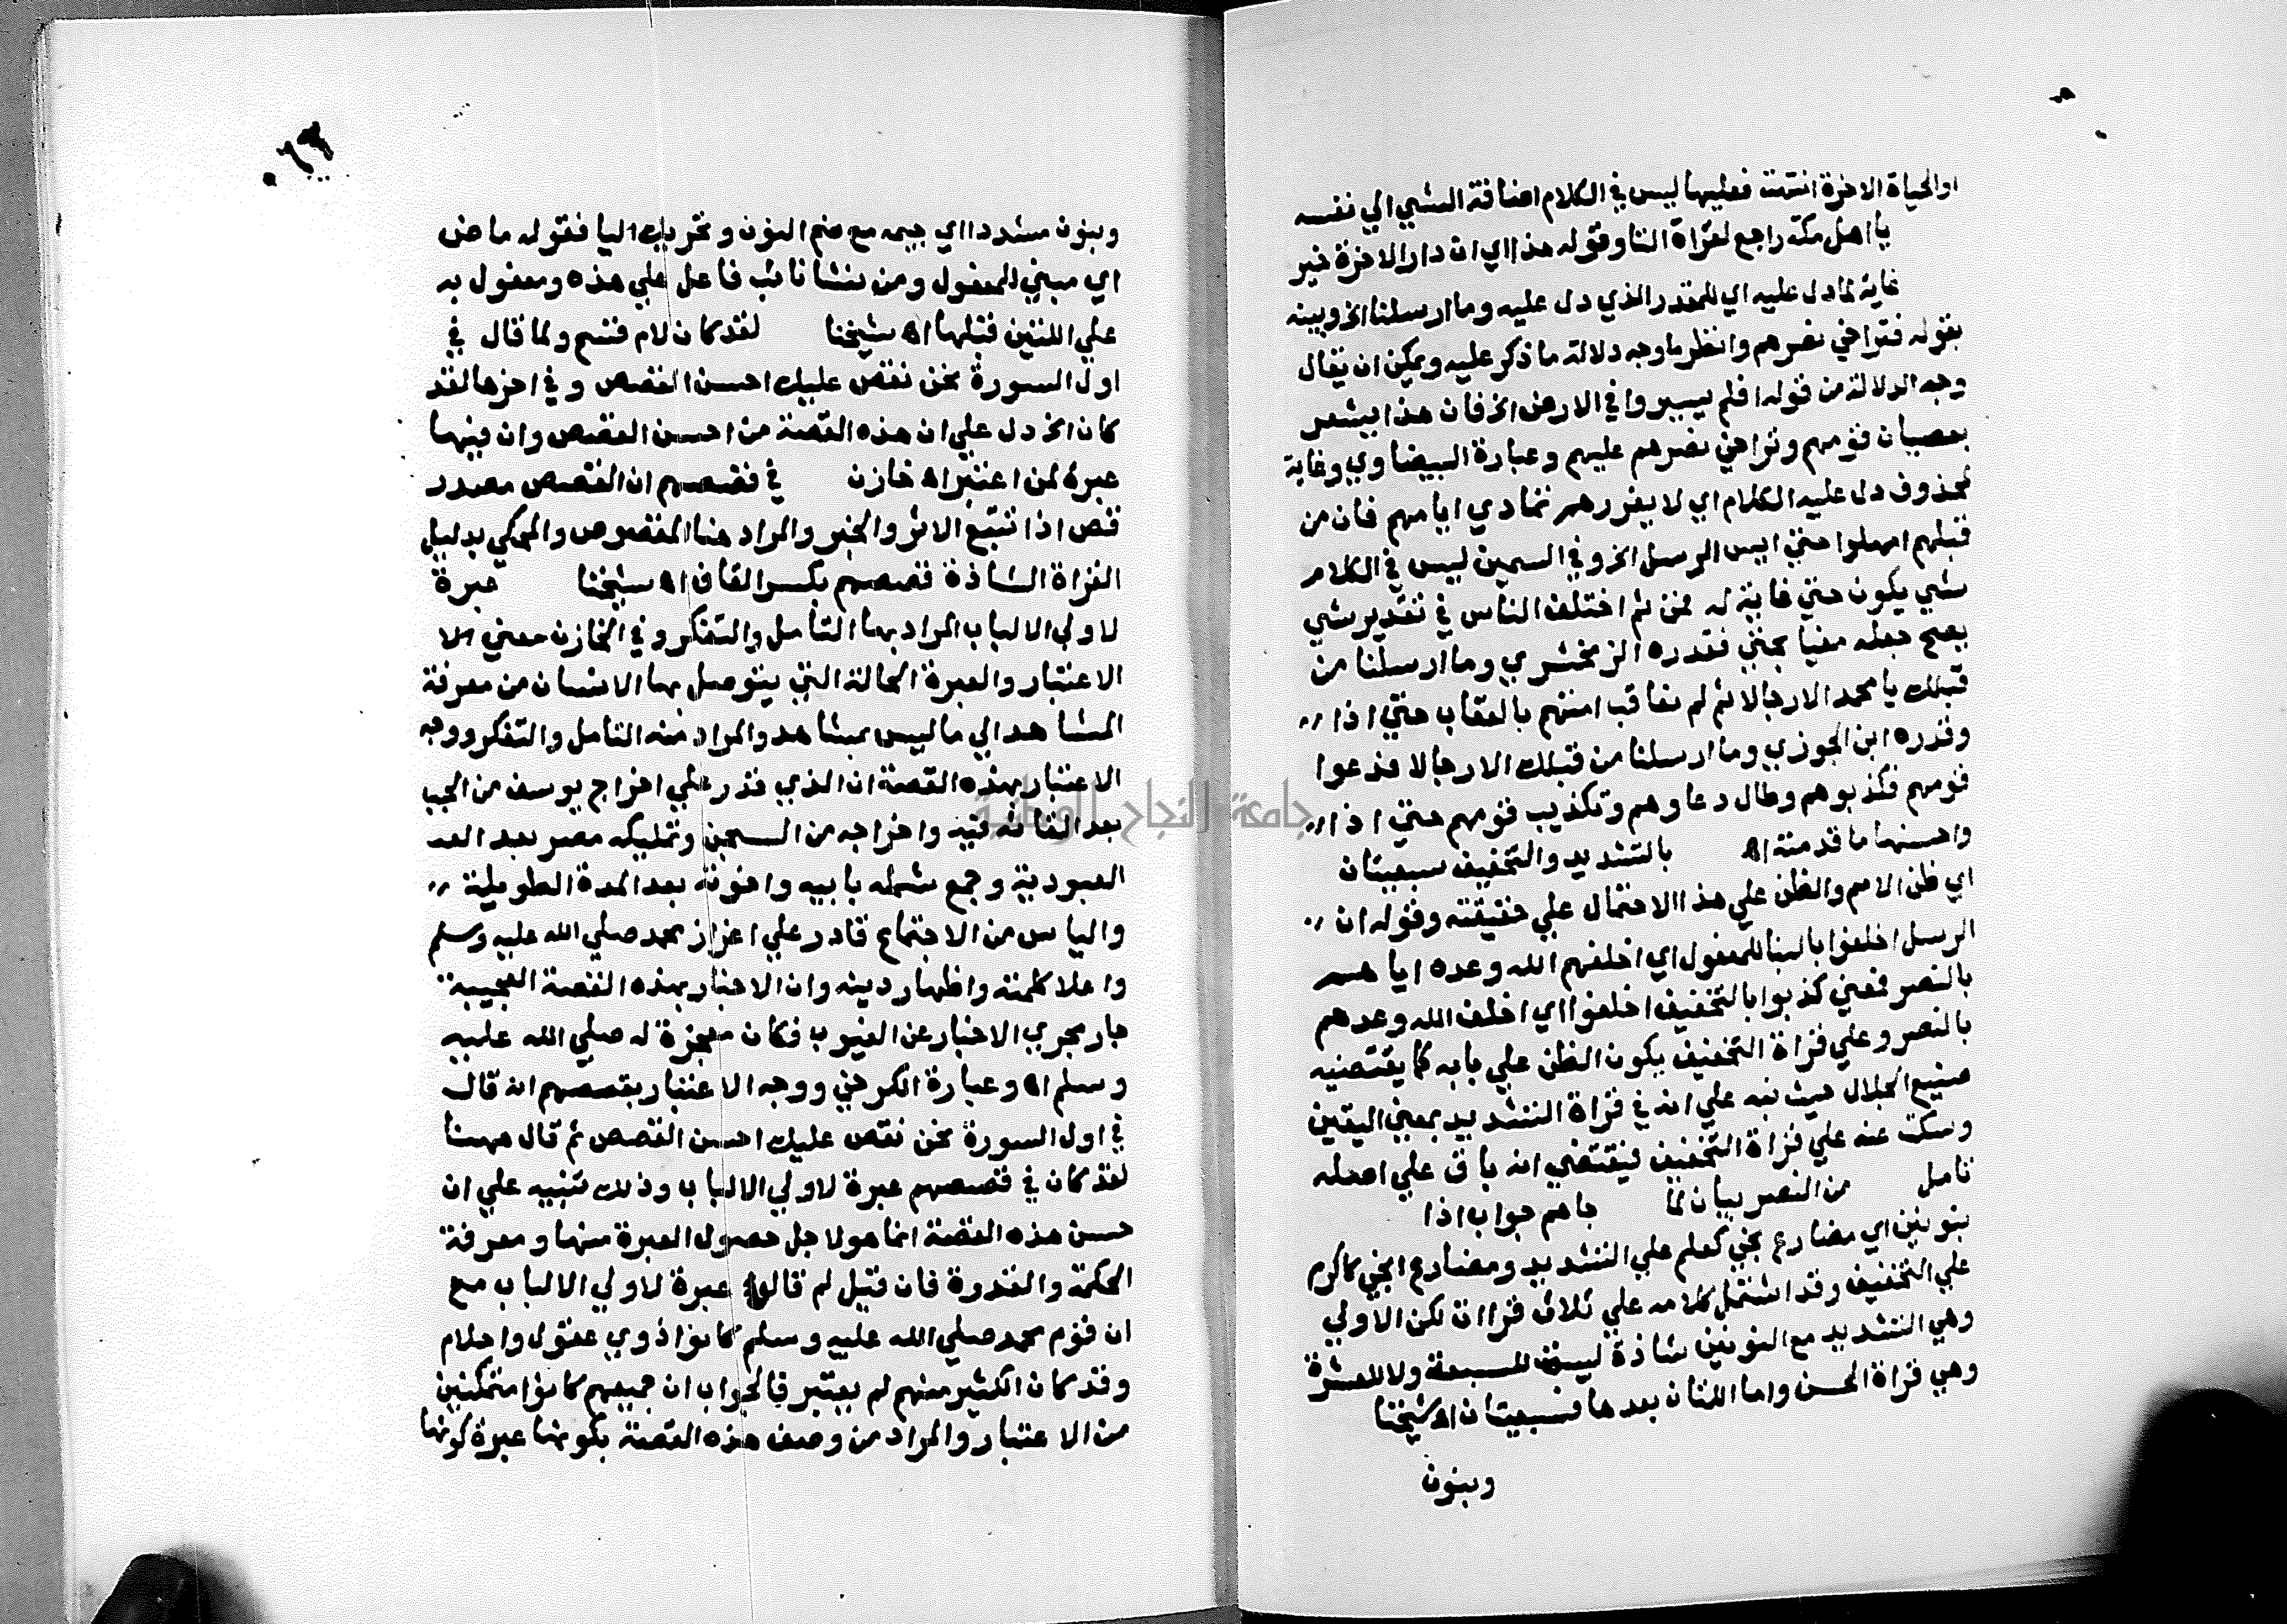 او الحياة الاخرة انتهت فعليها ليس في الكلام اضافة الشي الي نفسه
يا اهل مكة راجع لقراة التا وقوله هذا اي ان دار الاخرة خير
غاية لما دل عليه اي للمقدر الذي دل عليه وما ارسلنا الخ وبينه
بقوله فتراخي نصرهم وانظر ما وجه دلالة ما ذكر عليه ويمكن ان يقال
وجه الدلالة من قوله افلم يسيروا في الارض الخ فان هذا يشعر
بعصيان قومهم وتراخي نصرهم عليهم وعبارة البيضاوي وغاية
لمحذوف دل عليه الكلام اي لا يغررهم تمادي ايامهم فان من
قبلهم امهلوا حتي ايس الرسل الخ وفي السمين ليس في الكلام
شي يكون حتي غاية له فمن ثم اختلف الناس في تقدير شي
يصح جعله مغيا بحتي فقدره الزمخشري وما ارسلنا من
قبلك يا محمد الا رجالا ثم لم نعاقب اممهم بالعقاب حتي اذا
وقدره ابن الجوزي وما ارسلنا من قبلك الا رجالا فدعوا
قومهم فكذبوهم وطال دعاوهم وتكذيب قومهم حتي اذا
واحسنها ما قدمته اه بالتشديد والتخفيف سبعيتان
اي ظن الامم والظن علي هذا الاحتمال علي حقيقته وقوله ان
الرسل اخلفوا بالبنا للمفعول اي اخلفهم الله وعده اياهم
بالنصر فمعني كذبوا بالتخفيف اخلفوا اي اخلف الله وعدهم
بالنصر وعلي قراة التخفيف يكون الظن علي بابه كما يقتضيه
صنيع الجلال حيث نبه علي انه في قراة التشديد بمعني اليقين
وسكت عنه علي قراة التخفيف فيقتضي انه باق علي اصله
تامل من النصر بيان لما جاهم جواب اذا
بنونين اي مضارع نجي كعلم علي التشديد ومضارع انجي كاكرم
علي التخفيف وقد اشتمل كلامه علي ثلاث قراات لكن الاولي
وهي التشديد مع النونين شاذة ليست للسبعة ولا للعشرة
وهي قراة الحسن واما اللتان بعدها فسبعيتان اه شيخنا
وبنون
وبنون مشددا اي جيمه مع ضم النون وتحريك اليا فقوله ماض
اي مبني للمفعول ومن نشا نائب فاعل علي هذه ومفعول به
علي اللتين قبلها اه شيخنا لقد كان لام قسم ولما قال في
اول السورة نحن نقص عليك احسن القصص وفي اخرها لقد
كان الخ دل علي ان هذه القصة من احسن القصص وان فيها
عبرة لمن اعتبر اه خازن في قصصهم ان القصص مصدر
قص اذا تتبع الاثر والخبر والمراد هنا المقصوص والمحكي بدليل
القراة الشاذة قصصهم بكسر القاف اه شيخنا عبرة
لاولي الالباب المراد بها التامل والتفكر وفي الخازن معني الا
الاعتبار والعبرة الحالة التي يتوصل بها الانسان من معرفة
المشاهد الي ما ليس بمشاهد والمراد منه التامل والتفكر ووجه
الاعتبار بهذه القصة ان الذي قدر علي اخراج يوسف من الجب
بعد القائه فيه واخراجه من السجن وتمليكه مصر بعد العـ
العبودية وجمع شمله بابيه واخوته بعد المدة الطويلة
والياس من الاجتماع قادر علي اعزاز محمد صلي الله عليه وسلم
واعلا كلمته واظهار دينه وان الاخبار بهذه القصة العجيبة
جار مجري الاخبار عن الغيوب فكان معجزة له صلي الله عليه
وسلم اه وعبارة الكرخي ووجه الاعتبار بقصصهم انه قال
في اول السورة نحن نقص عليك احسن القصص ثم قال ههنا
لقد كان في قصصهم عبرة لاولي الالباب وذلك تنبيه علي ان
حسن هذه القصة انما هو لاجل حصول العبرة منها ومعرفة
الحكمة والقدرة فان قيل لم قال عبرة لاولي الالباب مع
ان قوم محمد صلي الله عليه وسلم كانوا ذوي عقول واحلام
وقد كان الكثير منهم لم يعتبر فالجواب ان جميعهم كانوا متمكنين
من الاعتبار والمراد من وصف هذه القصة بكونها عبرة كونها
جامعة النجاح الوطنية